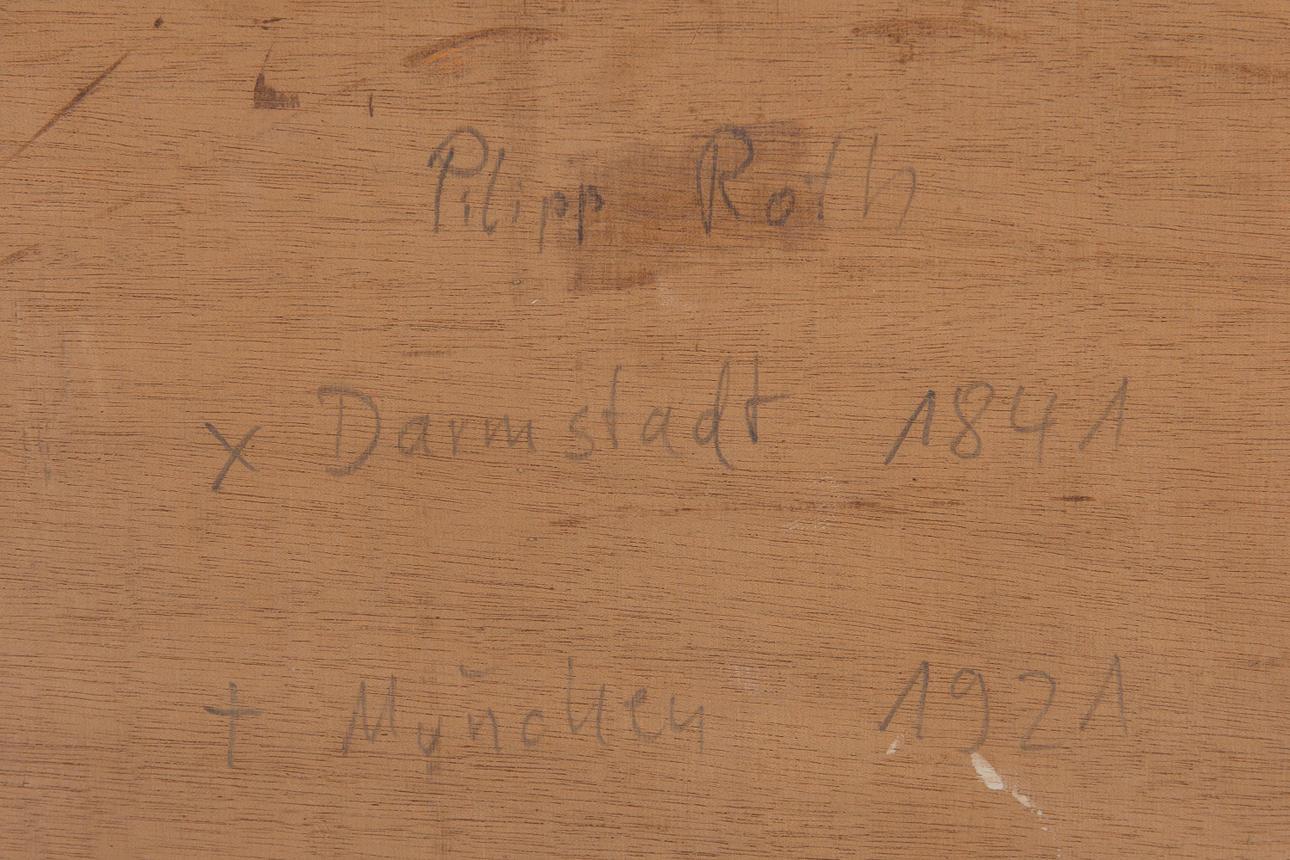 Pilipp Roth
x Darmstadt 1841
+ München 1921